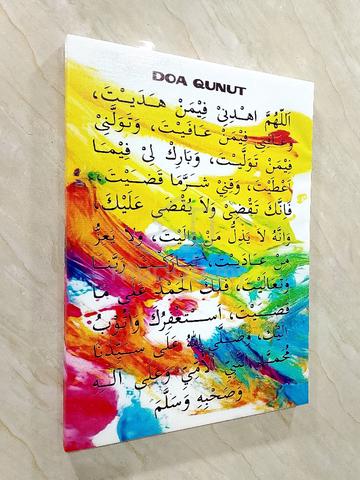 DOA QUNUT
اَللّٰهُمَّ اهْدِنِيْ فِيْمَنْ هَدَيْتَ،
وَعَافِنِيْ فِيْمَنْ عَافَيْتَ، وَتَوَلَّنِيْ
فِيْمَنْ تَوَلَّيْتَ، وَبَارِكْ لِيْ فِيْمَا
أَعْطَيْتَ، وَقِنِيْ شَرَّمَا قَضَيْتَ،
فَإِنَّكَ تَقْضِيْ وَلَا يُقْضَى عَلَيْكَ،
وَإِنَّهُ لَا يَذِلُّ مَنْ وَالَيْتَ، وَلَا يَعِزُّ
مَنْ عَادَيْتَ، تَبَارَكْتَ رَبَّنَا
وَتَعَالَيْتَ، فَلَكَ الْحَمْدُ عَلَى مَا
قَضَيْتَ، أَسْتَغْفِرُكَ وَأَتُوْبُ
إِلَيْكَ، وَصَلَّى اللهُ عَلَى سَيِّدِنَا
مُحَمَّدٍ النَّبِيِّ الْأُمِّيِّ وَعَلَى آلِهِ
وَصَحْبِهِ وَسَلَّمَ